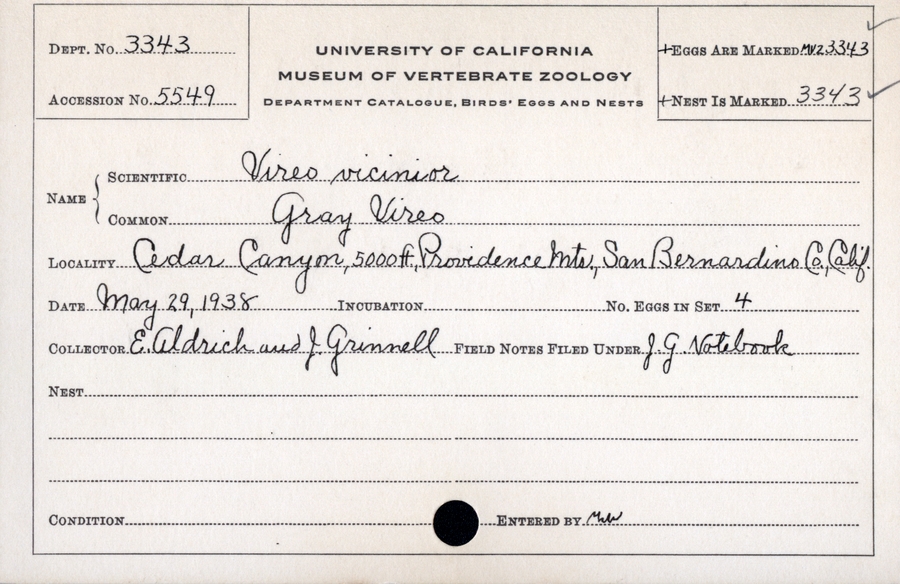 DEPT. NO. 3343
ACCESSION NO. 5549
UNIVERSITY OF CALIFORNIA
MUSEUM OF VERTEBRATE ZOOLOGY
DEPARTMENT CATALOGUE, BIRDS' EGGS AND NESTS
+EGGS ARE MARKED MVZ3343
+NEST IS MARKED 3343
NAME
SCIENTIFIC Vireo vicinior
COMMON Gray Vireo
LOCALITY Cedar Canyon, 5000 ft., Providence Mts., San Bernardino Co., Calif.
DATE May 29, 1938 INCUBATION NO. EGGS IN SET 4
COLLECTOR E. Aldrich and J. Grinnell FIELD NOTES FILED UNDER J.G. Notebook
NEST
CONDITION ENTERED BY